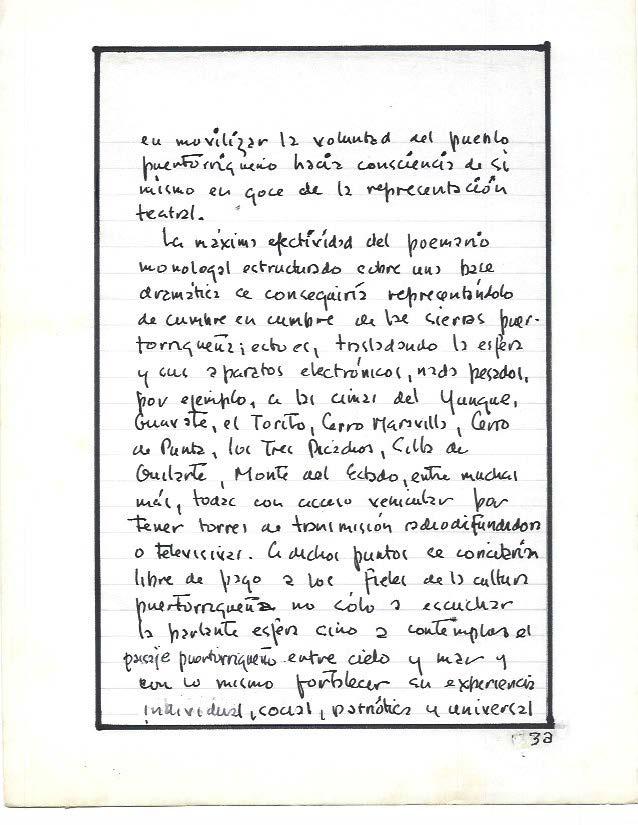 en movilizar la voluntad del pueblo
puertorriqueño hacia consciencia de sí
mismo en goce de la representación
teatral.
La máxima efectividad del poemario
monologal estructurado sobre una base
dramática se conseguiría representándolo
de cumbre en cumbre de las sierras puer-
torriqueña; esto es, trasladando la esfera
y sus aparatos electrónicos, nada pesados,
por ejemplo, a las cimas del Yunque,
Guavate, el Torito, Cerro Maravilla, Cerro
de Punta, los Tres Picachos, Silla de
Guilarte, Monte del Estado, entre muchas
más, todas con acceso vehicular por
tener torres de transmisión radiodifundidora
o televisivas. A dichos puntos se
libre de pago a los fieles de la cultura
puertorriqueña no sólo a escuchar
la parlante esfera sino a contemplar el
paisaje puertorriqueño entre cielo y mar y
con lo mismo fortalecer su experiencia
individual, social, patriótica y universal
38